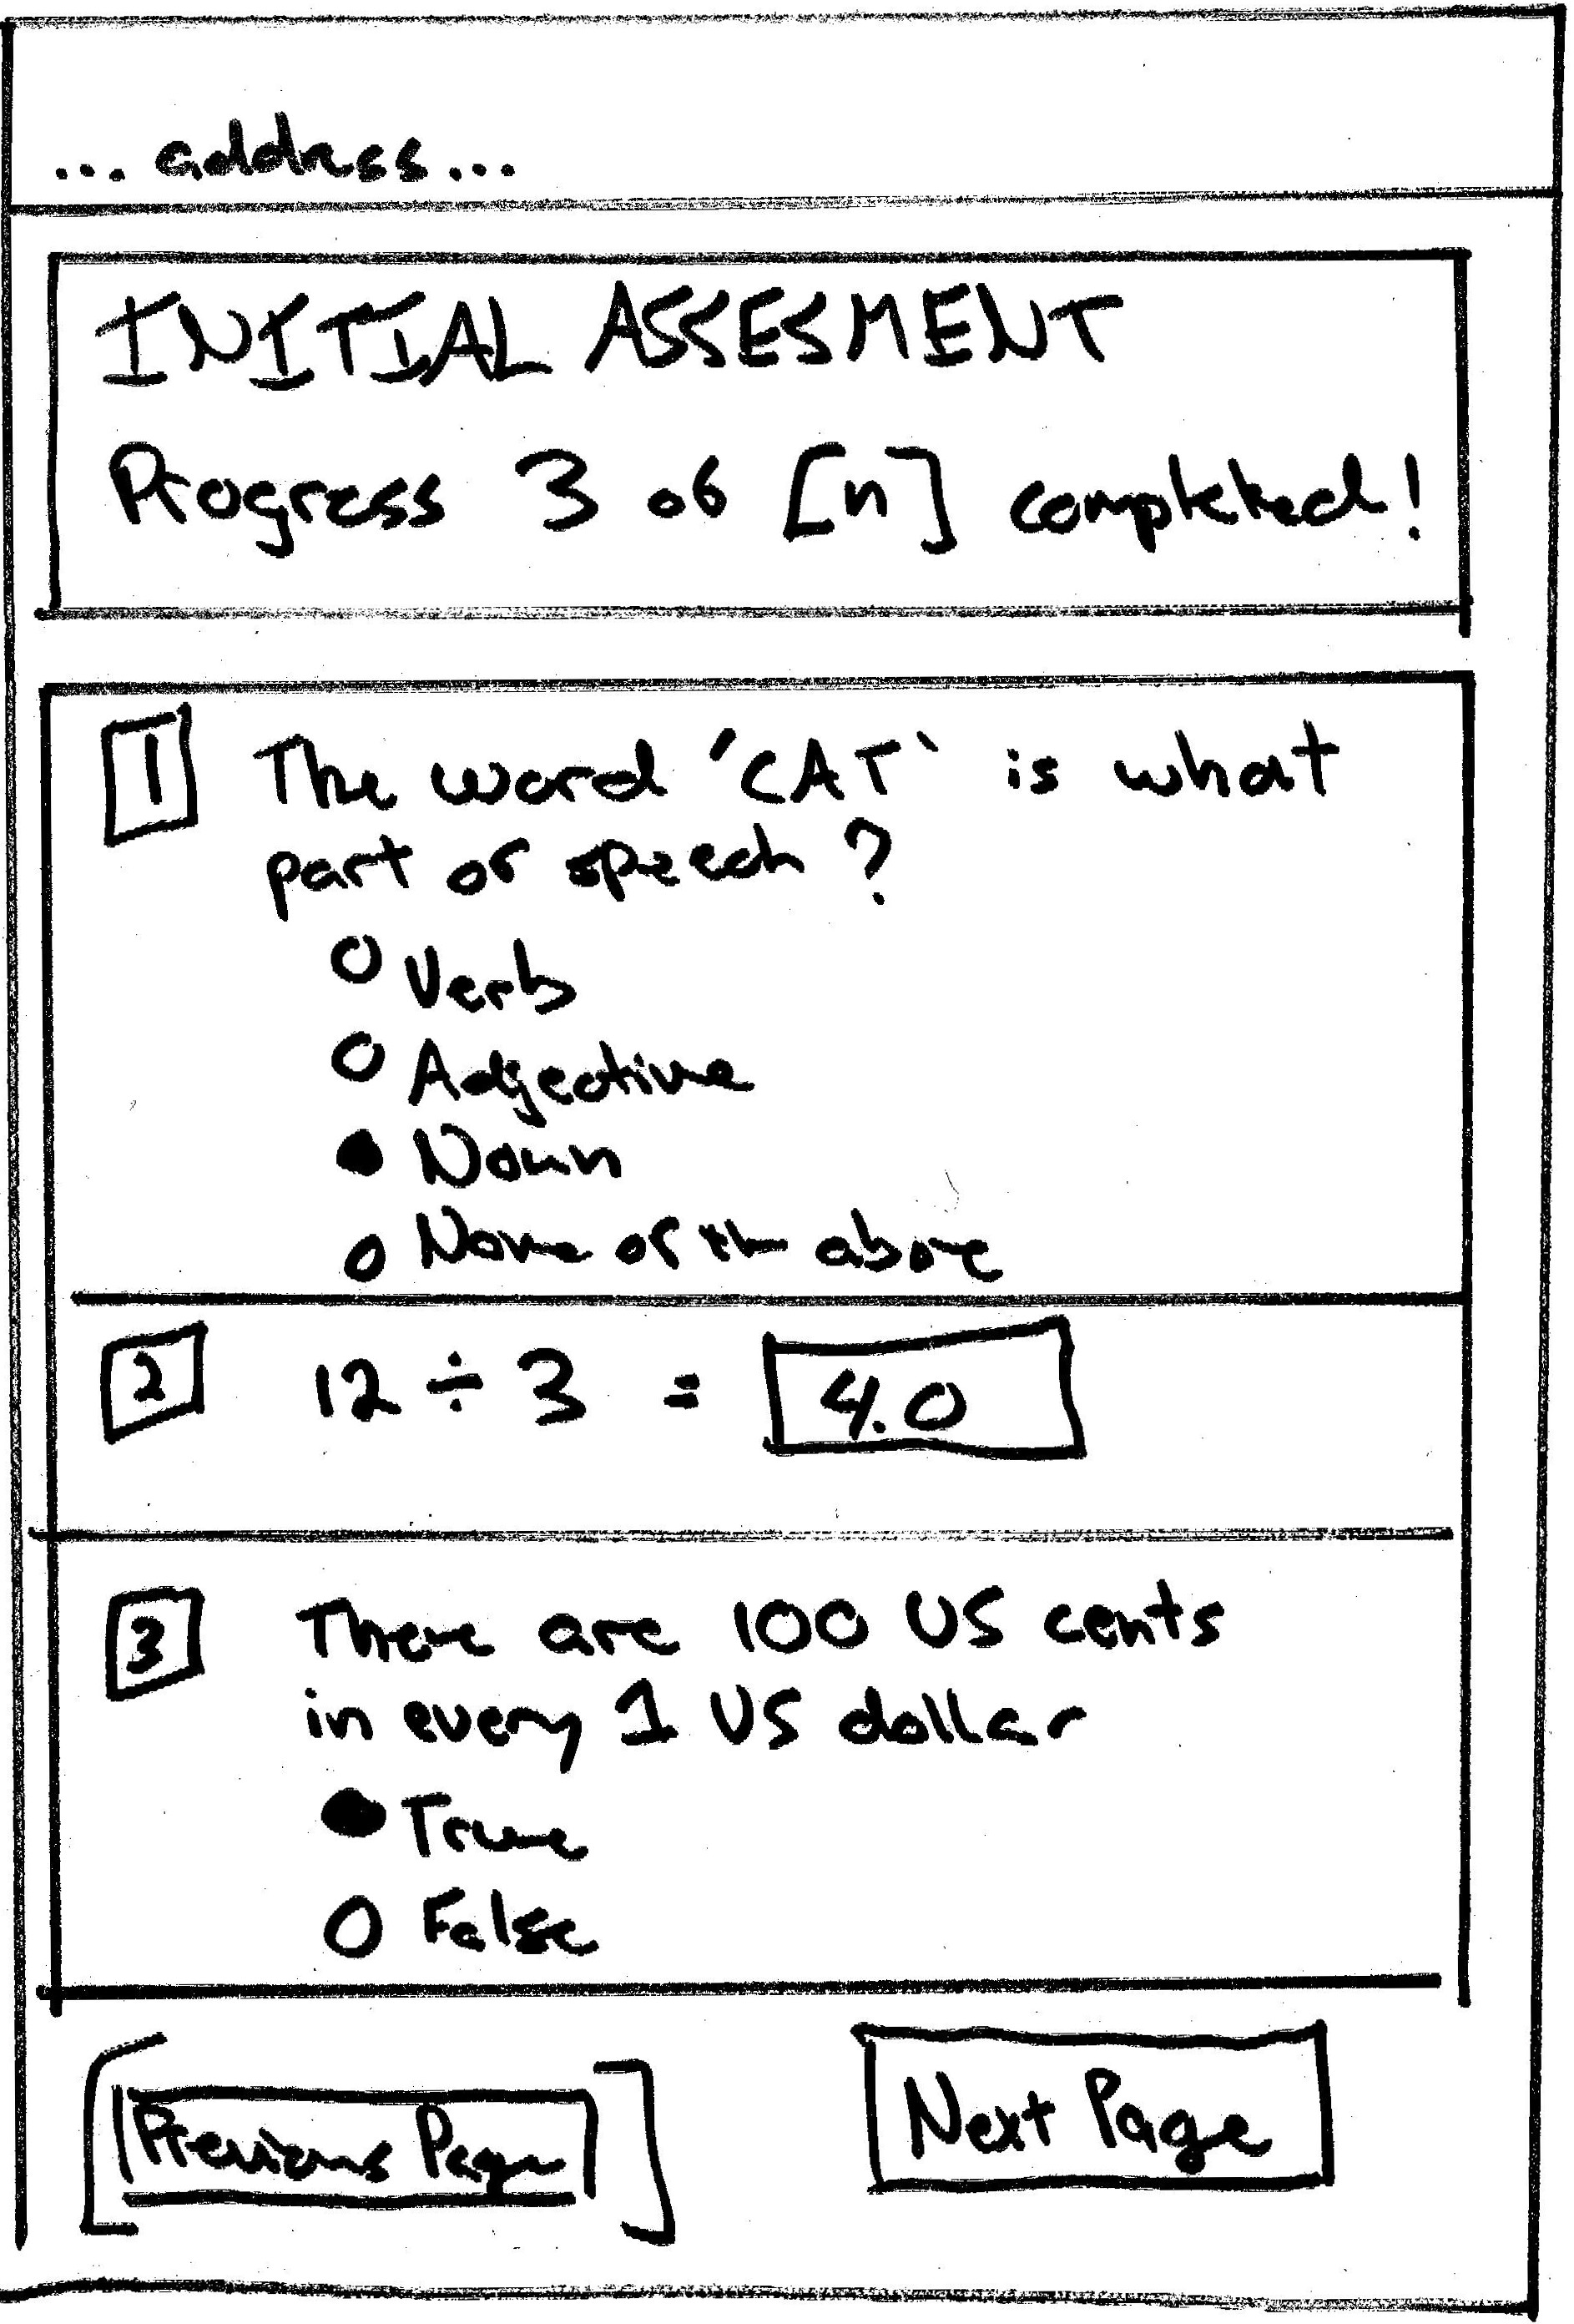 ... address...
INITIAL ASSESMENT
Progress 3 of [n] completed!
1 The word 'CAT' is what
part of speech?
Verb
Adjective
Noun
None of the above
2 12 ÷ 3 = 4.0
3 There are 100 US cents
in every 1 US dollar
True
False
[Previous Page] Next Page